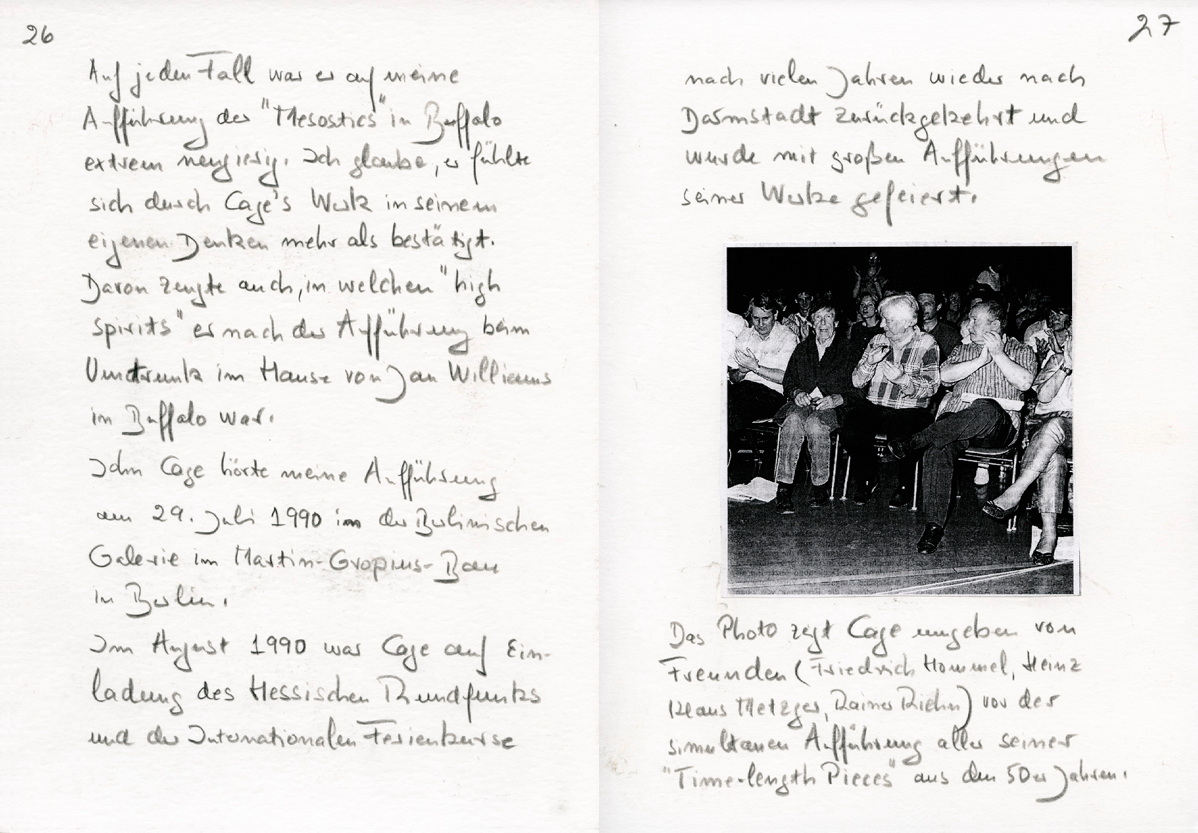 26
Auf jeden Fall war er auf meine
Aufführung der "Mesostics" in Buffalo
extrem neugierig. Ich glaube, er fühlte
sich durch Cage's Werk in seinem
eigenen Denken mehr als bestätigt.
Davon zeugte auch, in welchen "high
spirits" er nach der Aufführung beim
Umtrunk im Hause von Jan Williams
in Buffalo war.
John Cage hörte meine Aufführung
am 29. Juli 1990 in der Berlinischen
Galerie im Martin-Gropius-Bau
in Berlin.
Im August 1990 war Cage auf Ein-
ladung des Hessischen Rundfunks
und der Internationalen Ferienkurse
27
nach vielen Jahren wieder nach
Darmstadt zurückgekehrt und
wurde mit großen Aufführungen
seiner Werke gefeiert.
Das Photo zeigt Cage umgeben von
Freunden (Friedrich Hommel, Heinz
Klaus Metzger, Rainer Riehn) vor der
simultanen Aufführung aller seiner
"Time-length Pieces" aus den 50er Jahren.